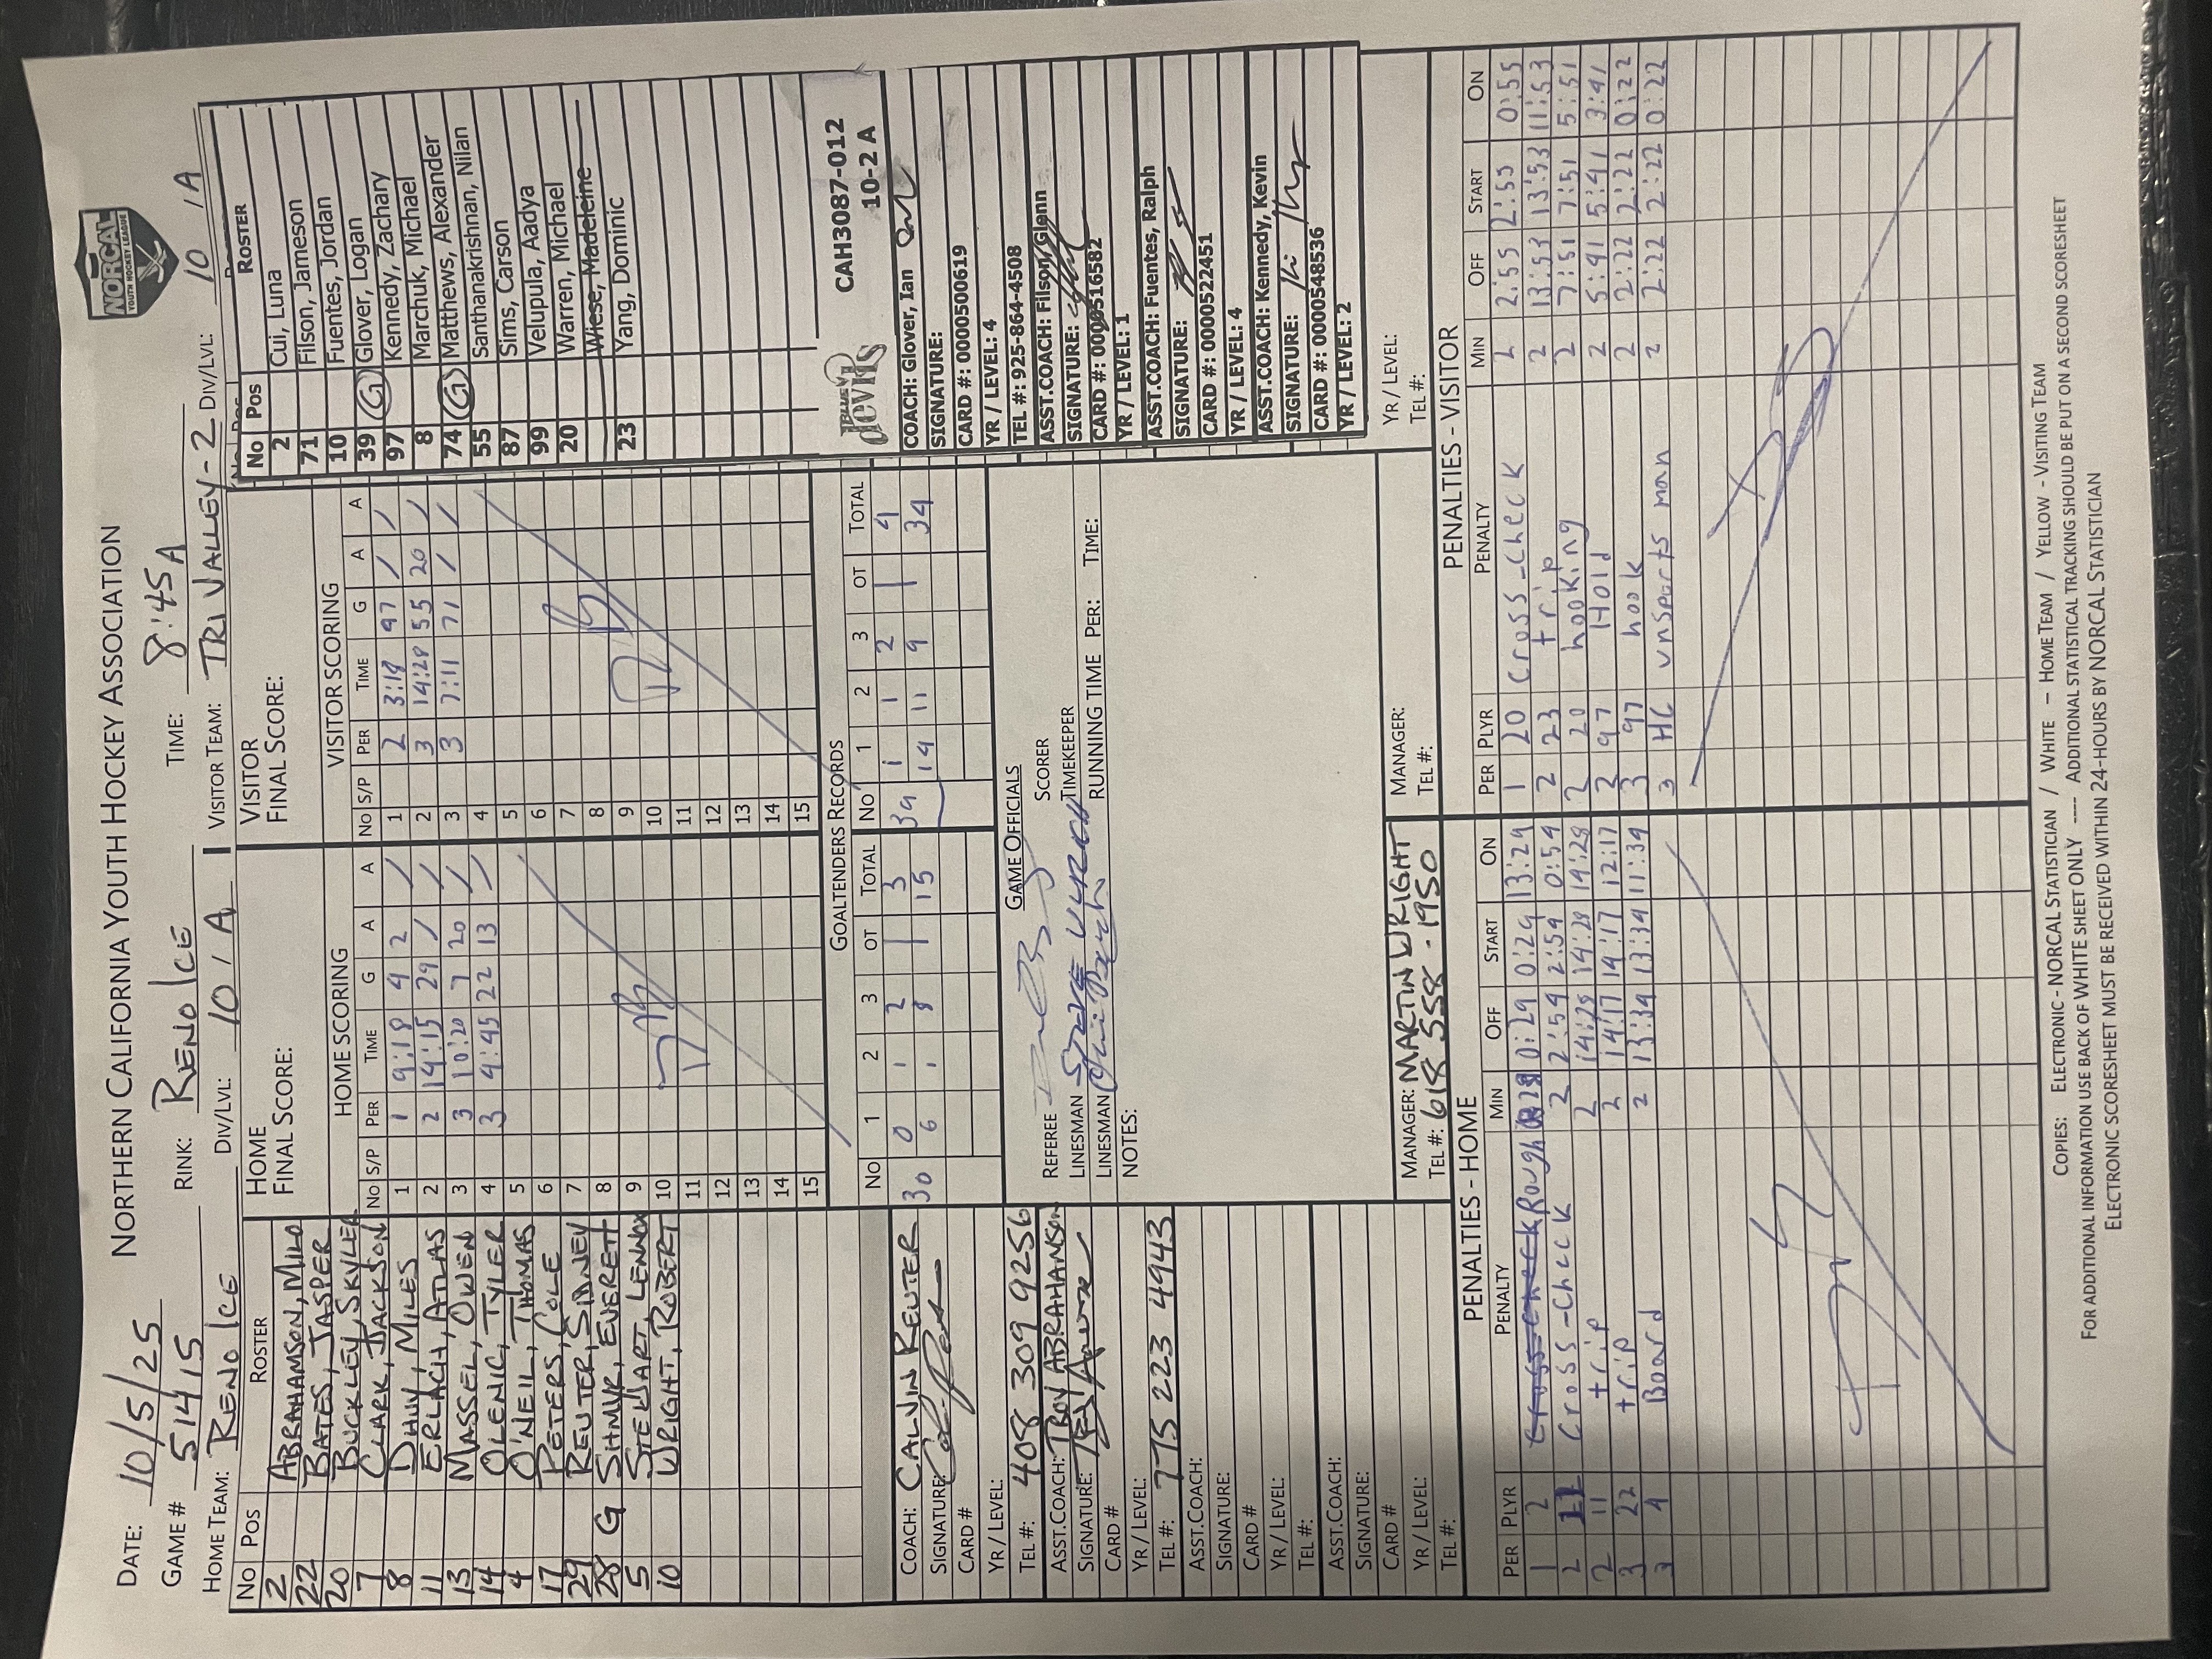 NORTHERN CALIFORNIA YOUTH HOCKEY ASSOCIATION
NORCAL
YOUTH HOCKEY LEAGUE
DATE: 10/5/25
GAME # 51415 RINK: RENO ICE TIME: 8:45A
HOME TEAM: RENO ICE DIV/LVL: 10/A VISITOR TEAM: TRI VALLEY-2 DIV/LVL: 10 A
No Pos ROSTER
2 ABRAHAMSON, MILO
22 BATES, JASPER
20 BUCKLEY, SKYLER
7 CLARK, JACKSON
8 DHUY, MILES
11 ERLACH, ATLAS
13 MASSEL, OWEN
14 OLENIC, TYLER
4 O'NEIL, THOMAS
17 PETERS, COLE
29 REUTER, SIDNEY
28 G SHMYR, EVERETT
5 STEWART, LENNOX
10 WRIGHT, ROBERT
HOME
FINAL SCORE:
HOME SCORING
No S/P PER TIME G A A
1 1 9:18 4 2 /
2 2 14:15 29 / /
3 3 10:20 7 20 /
4 3 4:45 22 13 /
5
6
7
8
9
10
11
12
13
14
15
VISITOR
FINAL SCORE:
VISITOR SCORING
No S/P PER TIME G A A
1 2 3:18 97 / /
2 3 14:28 55 20 /
3 3 7:11 71 / /
4
5
6
7
8
9
10
11
12
13
14
15
No Pos ROSTER
2 Cui, Luna
71 Filson, Jameson
10 Fuentes, Jordan
39 G Glover, Logan
97 Kennedy, Zachary
8 Marchuk, Michael
74 G Matthews, Alexander
55 Santhanakrishnan, Nilan
87 Sims, Carson
99 Velupula, Aadya
20 Warren, Michael
Wiese, Madeleine
23 Yang, Dominic
GOALTENDERS RECORDS
No 1 2 3 OT TOTAL No 1 2 3 OT TOTAL
30 0 1 2 | 3 39 1 1 2 | 4
6 1 8 | 15 14 11 9 | 34
COACH: CALVIN REUTER
SIGNATURE:
CARD #
YR / LEVEL:
TEL #: 408 309 9256
ASST.COACH: TROY ABRAHAMSON
SIGNATURE:
CARD #
YR / LEVEL:
TEL #: 775 223 4943
ASST.COACH:
SIGNATURE:
CARD #
YR / LEVEL:
TEL #:
ASST.COACH:
SIGNATURE:
CARD #
YR / LEVEL:
TEL #:
GAME OFFICIALS
REFEREE SCORER
LINESMAN TIMEKEEPER
LINESMAN RUNNING TIME PER: TIME:
NOTES:
MANAGER: MARTIN WRIGHT
TEL #: 618 558-1950
MANAGER:
TEL #:
BLUE devils
CAH3087-012
10-2 A
COACH: Glover, Ian
SIGNATURE:
CARD #: 0000500619
YR / LEVEL: 4
TEL #: 925-864-4508
ASST.COACH: Filson, Glenn
SIGNATURE:
CARD #: 0000516582
YR / LEVEL: 1
ASST.COACH: Fuentes, Ralph
SIGNATURE:
CARD #: 0000522451
YR / LEVEL: 4
ASST.COACH: Kennedy, Kevin
SIGNATURE:
CARD #: 0000548536
YR / LEVEL: 2
YR / LEVEL:
TEL #:
PENALTIES - HOME
PER PLYR PENALTY MIN OFF START ON
1 2 Cross-Check Rough 0:29 0:29 13:29
2 11 Cross-Check 2 2:54 2:54 0:54
2 11 trip 2 14:28 14:28 14:28
3 22 trip 2 14:17 14:17 12:17
3 4 Board 2 13:34 13:34 11:34
PENALTIES - VISITOR
PER PLYR PENALTY MIN OFF START ON
1 20 Cross-Check 2 2:55 2:55 0:55
2 23 trip 2 13:53 13:53 11:53
2 20 hooking 2 7:51 7:51 5:51
2 97 Hold 2 5:41 5:41 3:41
3 97 hook 2 2:22 2:22 0:22
3 HC unsports man 2 2:22 2:22 0:22
COPIES: ELECTRONIC - NORCAL STATISTICIAN / WHITE - HOME TEAM / YELLOW - VISITING TEAM
FOR ADDITIONAL INFORMATION USE BACK OF WHITE SHEET ONLY ---- ADDITIONAL STATISTICAL TRACKING SHOULD BE PUT ON A SECOND SCORESHEET
ELECTRONIC SCORESHEET MUST BE RECEIVED WITHIN 24-HOURS BY NORCAL STATISTICIAN